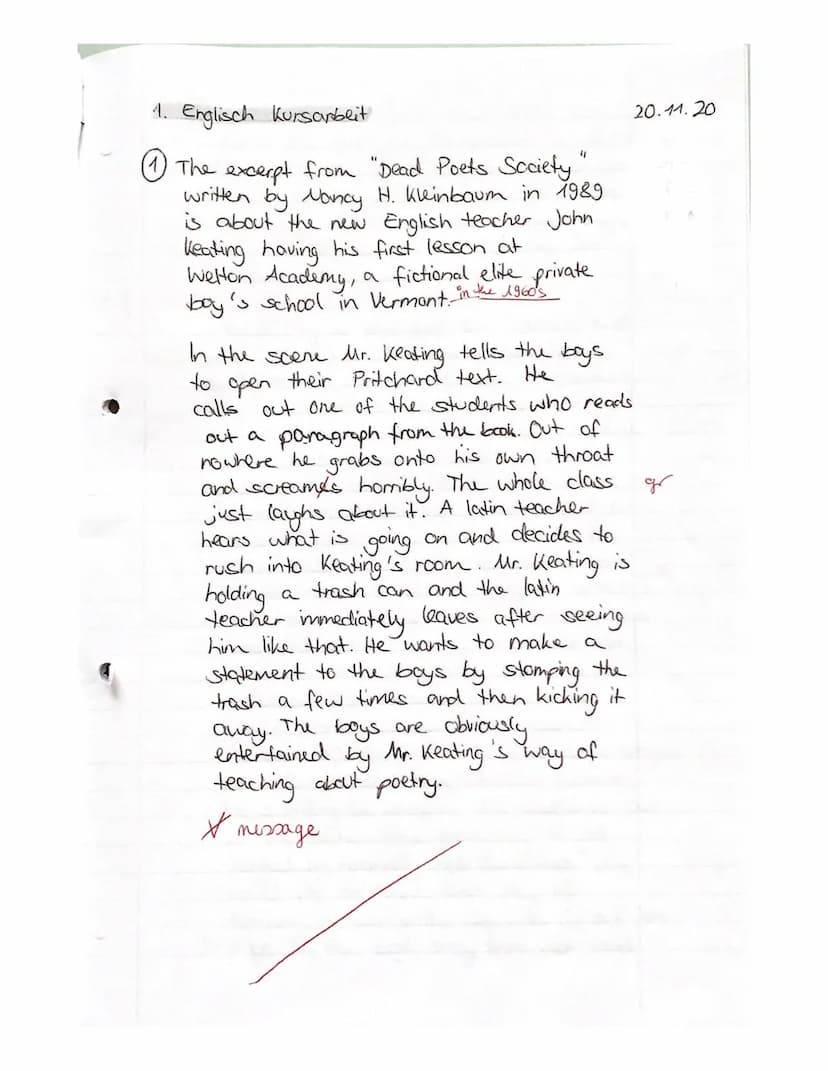 1. Englisch Kursarbeit 20.11.20
① The excerpt from "Dead Poets Society"
written by Nancy H. Kleinbaum in 1989
is about the new English teacher John
Keating having his first lesson at
Welton Academy, a fictional elite private
boy's school in Vermont. in the 1960s
In the scene Mr. Keating tells the boys
to open their Pritchard text. He
calls out one of the students who reads
out a paragraph from the book. Out of
nowhere he grabs onto his own throat
and screames horribly. The whole class gr
just laughs about it. A latin teacher
hears what is going on and decides to
rush into Keating's room. Mr. Keating is
holding a trash can and the latin
teacher immediately leaves after seeing
him like that. He wants to make a
statement to the boys by stomping the
trash a few times and then kicking it
away. The boys are obviously
entertained by Mr. Keating's way of
teaching about poetry.
message